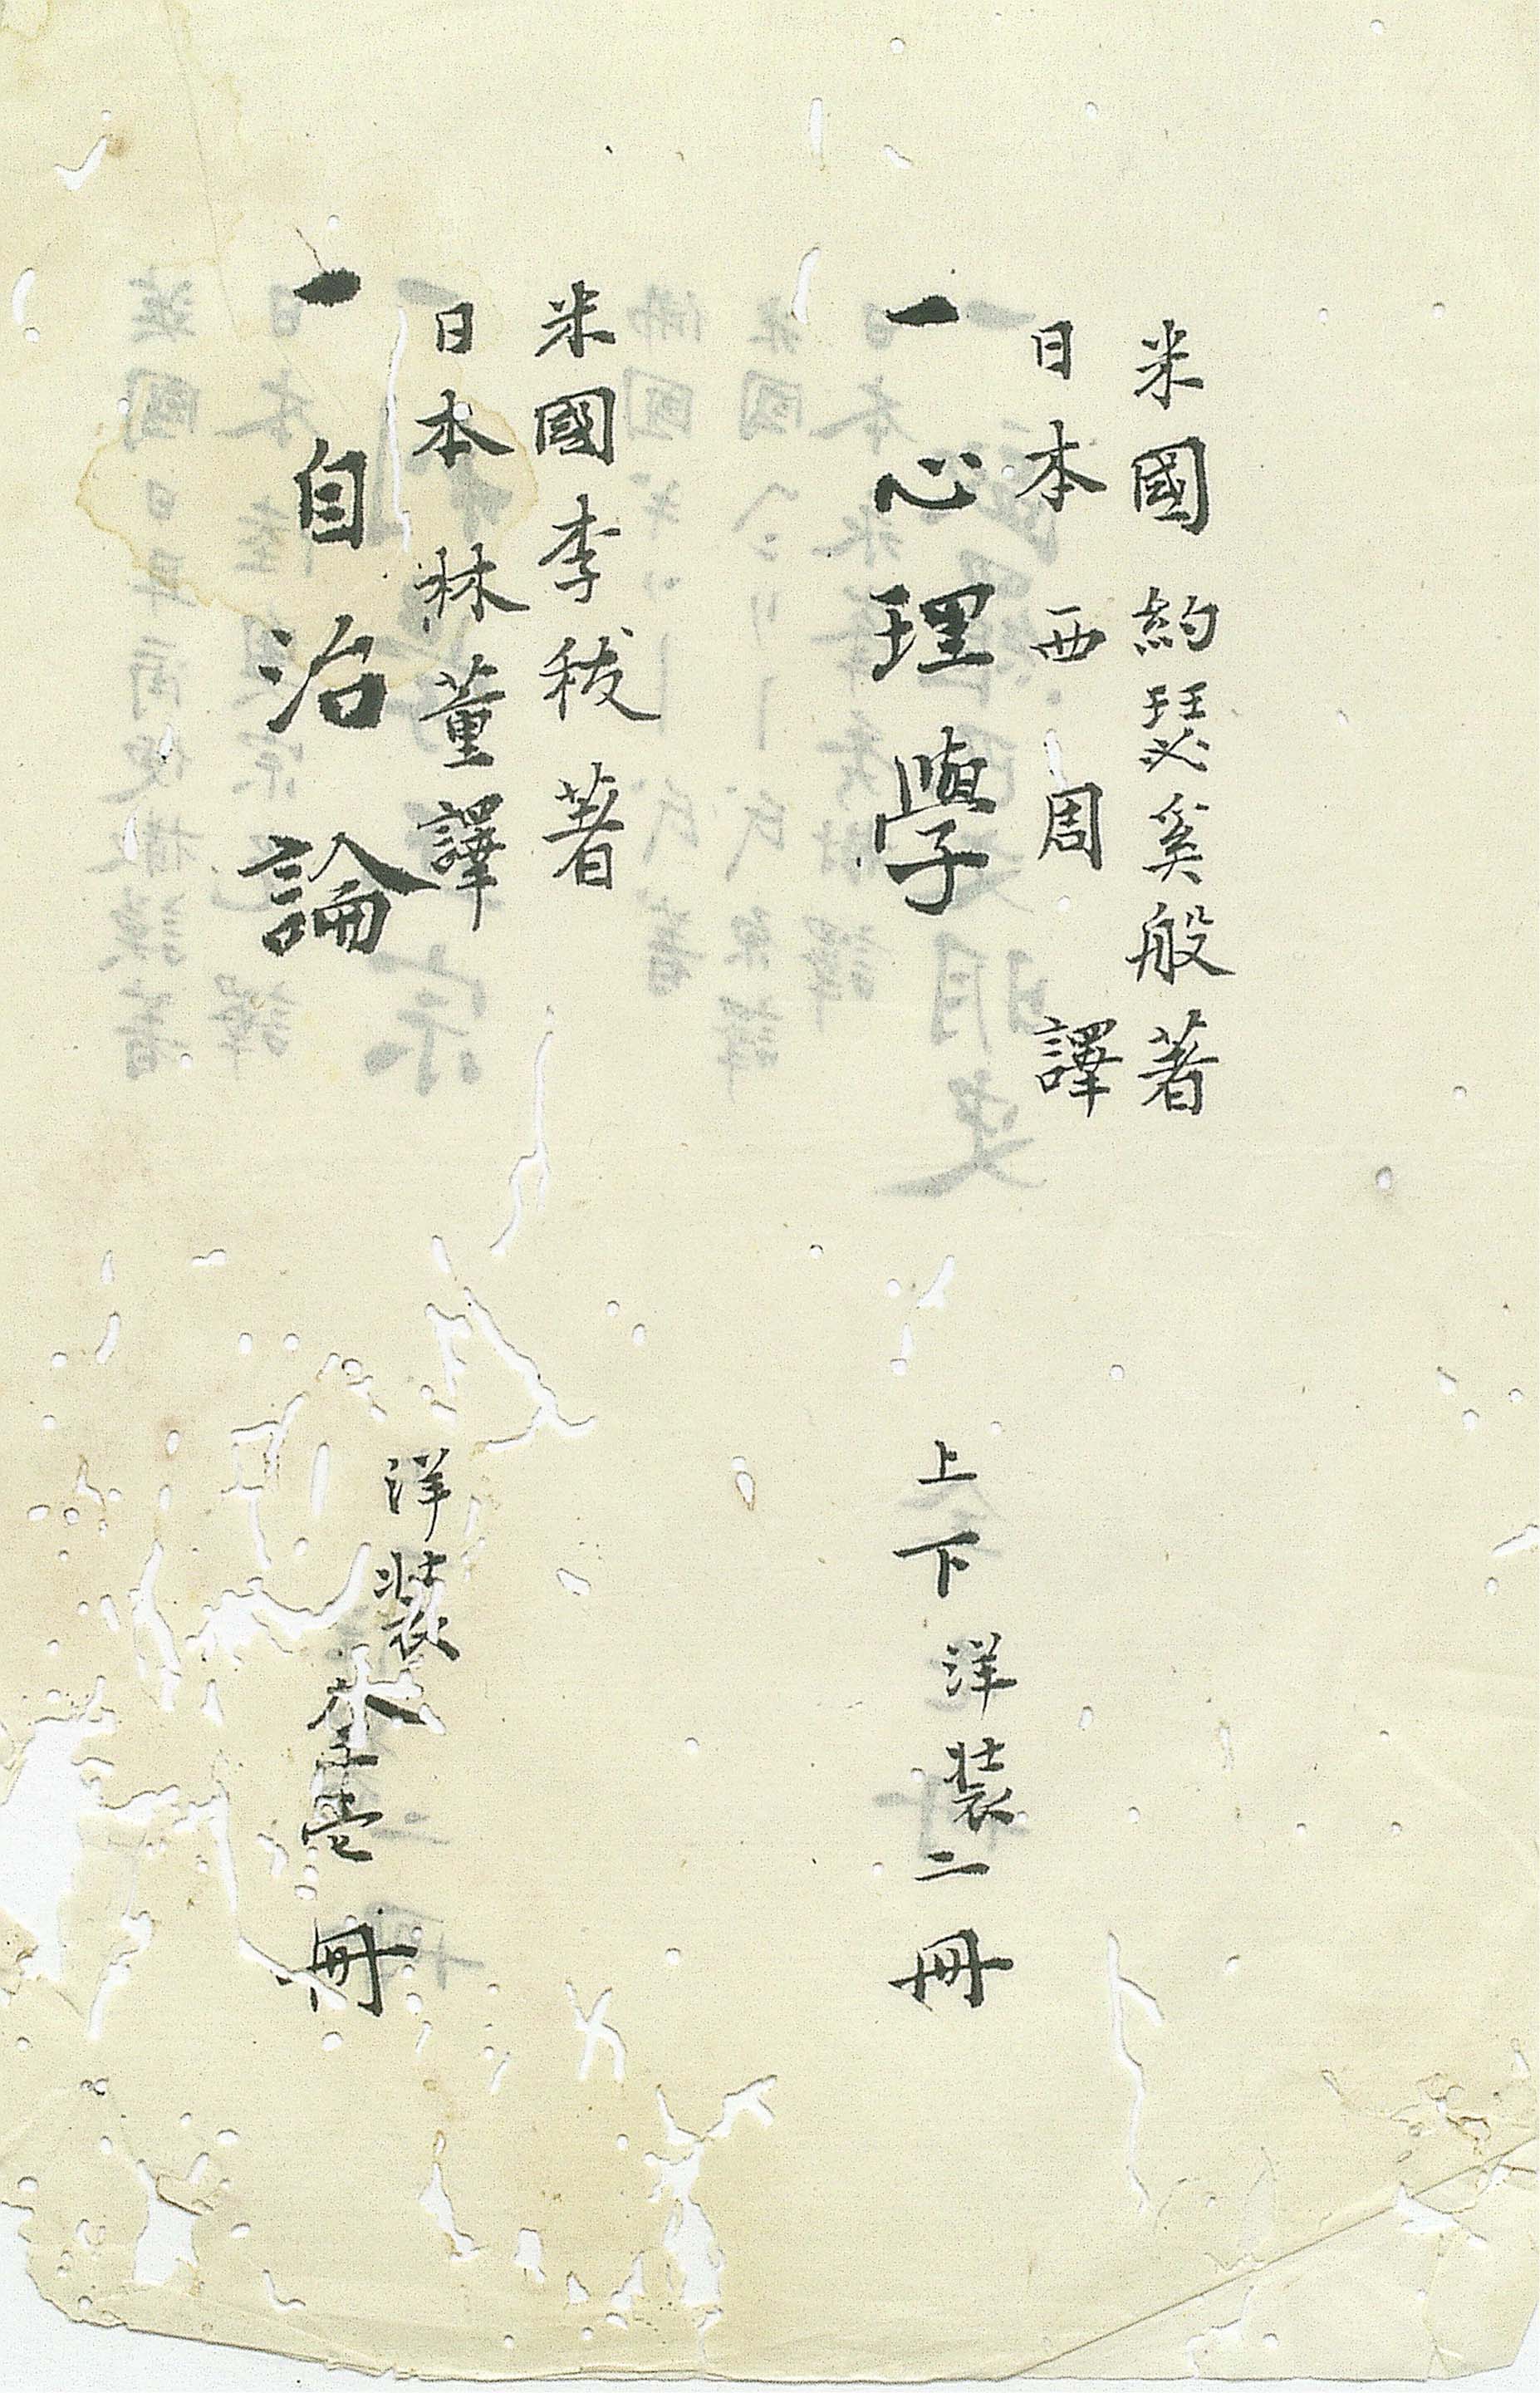 米國約瑟奚般著
日本西周 譯
一心理學
上下洋装二冊
米國李拔著
日本林董譯
一自治論
洋装
壱冊